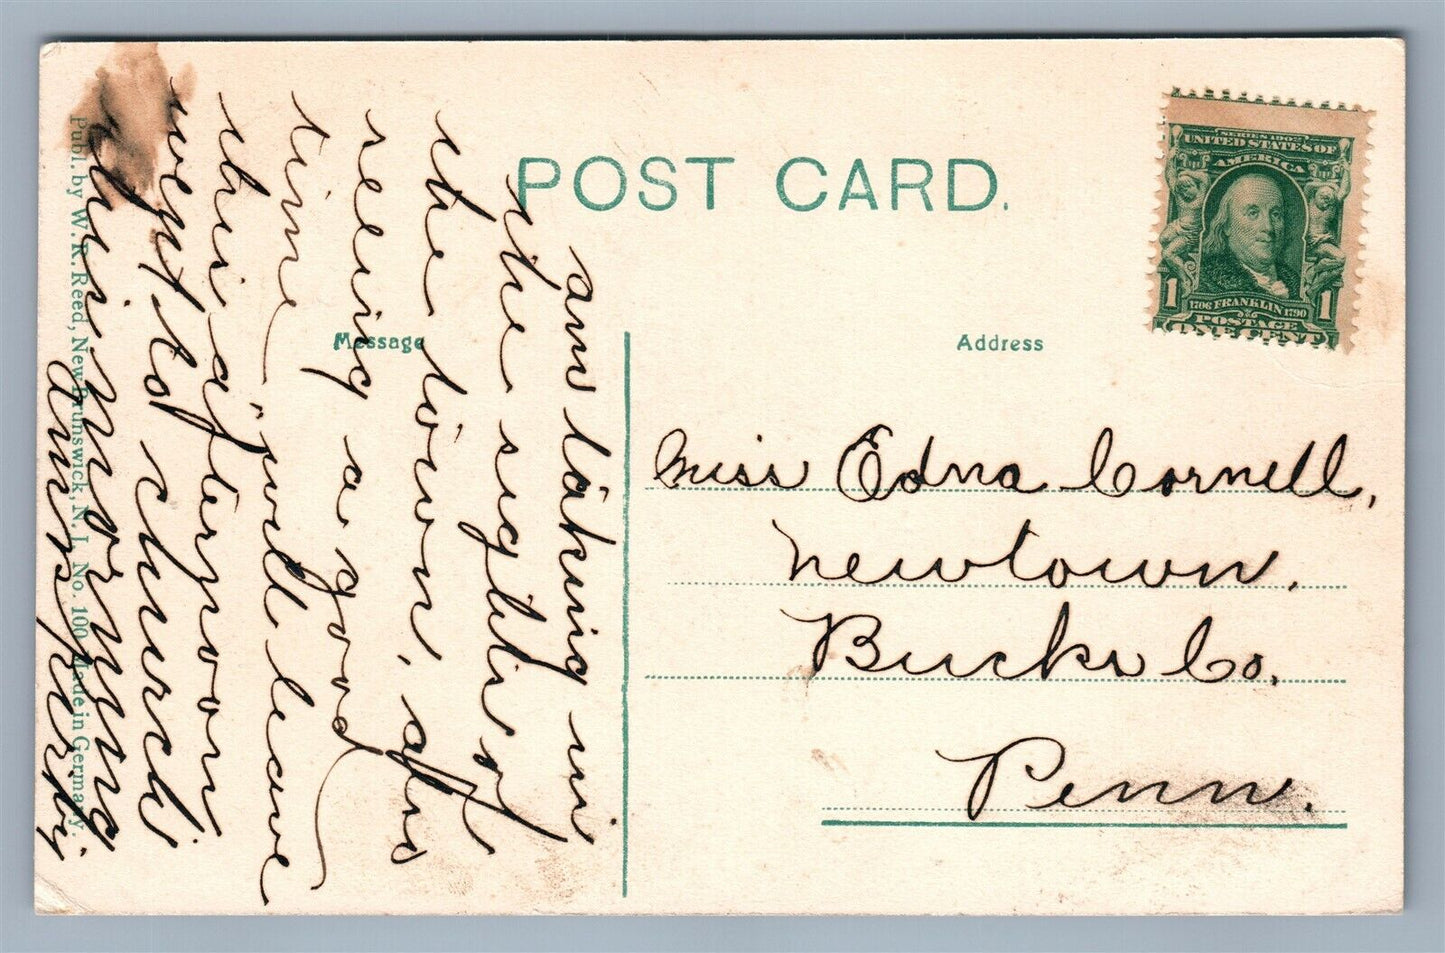 POST CARD.
SERIES 1902
UNITED STATES OF
AMERICA
1 1706 FRANKLIN 1790 1
POSTAGE
ONE CENT
Message
Address
Miss Edna Cornell,
Newtown.
Bucks Co.
Penn.
am taking in
the sights of
the town, also
seeing a good
time will leave
this afternoon
went to church
this morning
Publ. by W. R. Reed, New Brunswick, N. J. No. 100 Made in Germany.